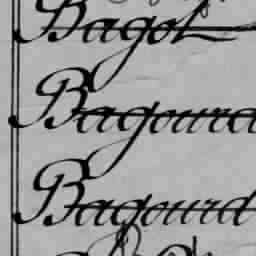 Bagot
Bagourd
Bagourd